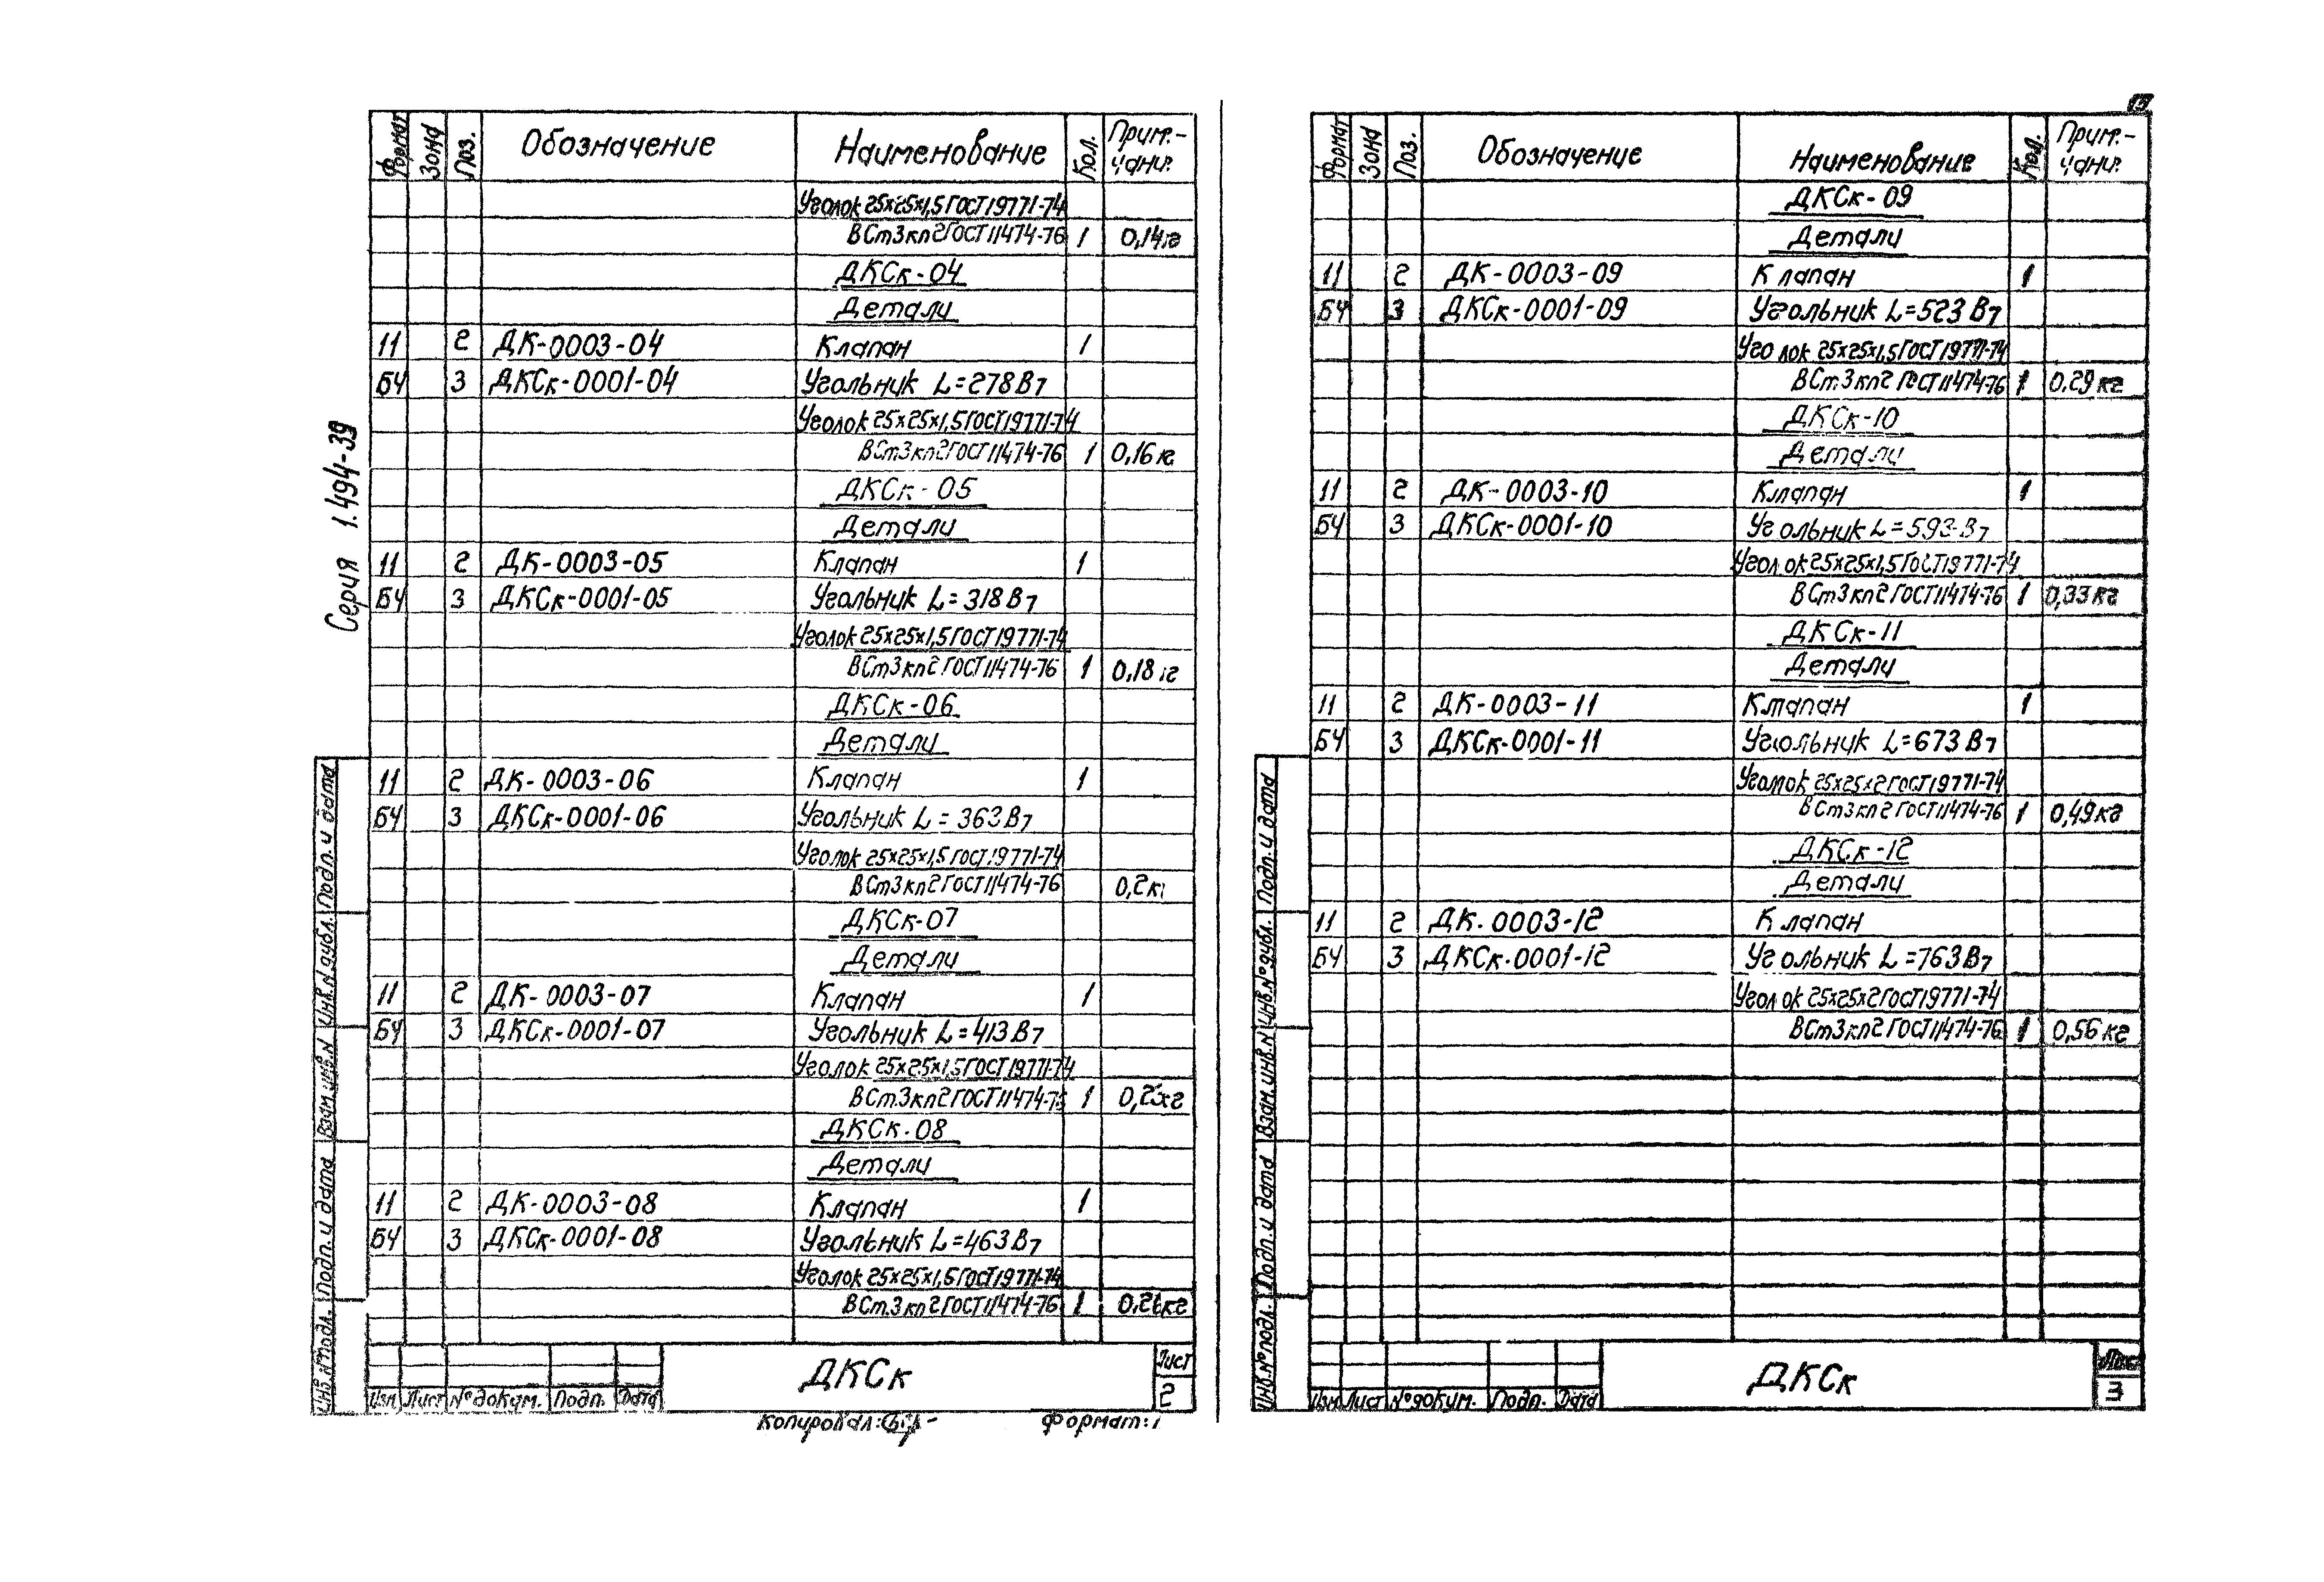 Серия 1.494-39
Формат Зона Поз. Обозначение Наименование Кол. Прим.-чани.
Уголок 25х25х1,5 ГОСТ 19771-74
ВСт3кп2 ГОСТ 11474-76 1 0,14
ДКСк-04
Детали
11 2 ДК-0003-04 Клапан 1
БЧ 3 ДКСк-0001-04 Угольник L=278В7
Уголок 25х25х1,5 ГОСТ 19771-74
ВСт3кп2 ГОСТ 11474-76 1 0,16 кг
ДКСк-05
Детали
11 2 ДК-0003-05 Клапан 1
БЧ 3 ДКСк-0001-05 Угольник L=318В7
Уголок 25х25х1,5 ГОСТ 19771-74
ВСт3кп2 ГОСТ 11474-76 1 0,18
ДКСк-06
Детали
11 2 ДК-0003-06 Клапан 1
БЧ 3 ДКСк-0001-06 Угольник L=363В7
Уголок 25х25х1,5 ГОСТ 19771-74
ВСт3кп2 ГОСТ 11474-76 0,2
ДКСк-07
Детали
11 2 ДК-0003-07 Клапан 1
БЧ 3 ДКСк-0001-07 Угольник L=413В7
Уголок 25х25х1,5 ГОСТ 19771-74
ВСт.3кп2 ГОСТ 11474-76 1
ДКСк-08
Детали
11 2 ДК-0003-08 Клапан 1
БЧ 3 ДКСк-0001-08 Угольник L=463В7
Уголок 25х25х1,5 ГОСТ 19771-74
ВСт.3кп2 ГОСТ 11474-76 1
Инв.№подл. Подп. и дата Взам.инв.N Инв.N дубл. Подп. и дата
Изм Лист №докум. Подп. Дата ДКСк Лист 2
Копировал: Формат:
Формат Зона Поз. Обозначение Наименование Кол. Прим.-чани.
ДКСк-09
Детали
11 2 ДК-0003-09 Клапан 1
БЧ 3 ДКСк-0001-09 Угольник L=523В7
Уголок 25х25х1,5 ГОСТ 19771-74
ВСт.3кп2 ГОСТ 11474-76 1 0,29 кг
ДКСк-10
Детали
11 2 ДК-0003-10 Клапан 1
БЧ 3 ДКСк-0001-10 Угольник L=593-В7
Уголок 25х25х1,5 ГОСТ 19771-74
ВСт3кп2 ГОСТ 11474-76 1 0,33 кг
ДКСк-11
Детали
11 2 ДК-0003-11 Клапан 1
БЧ 3 ДКСк-0001-11 Угольник L=673В7
Уголок 25х25х2 ГОСТ 19771-74
ВСт3кп2 ГОСТ 11474-76 1 0,49 кг
ДКСк-12
Детали
11 2 ДК.0003-12 Клапан
БЧ 3 ДКСк.0001-12 Угольник L=763В7
Уголок 25х25х2 ГОСТ 19771-74
ВСт3кп2 ГОСТ 11474-76 1 0,56 кг
Инв.№подл. Подп. и дата Взам.инв.N Инв.№дубл. Подп. и дата
Изм Лист №докум. Подп. Дата ДКСк Лист 3